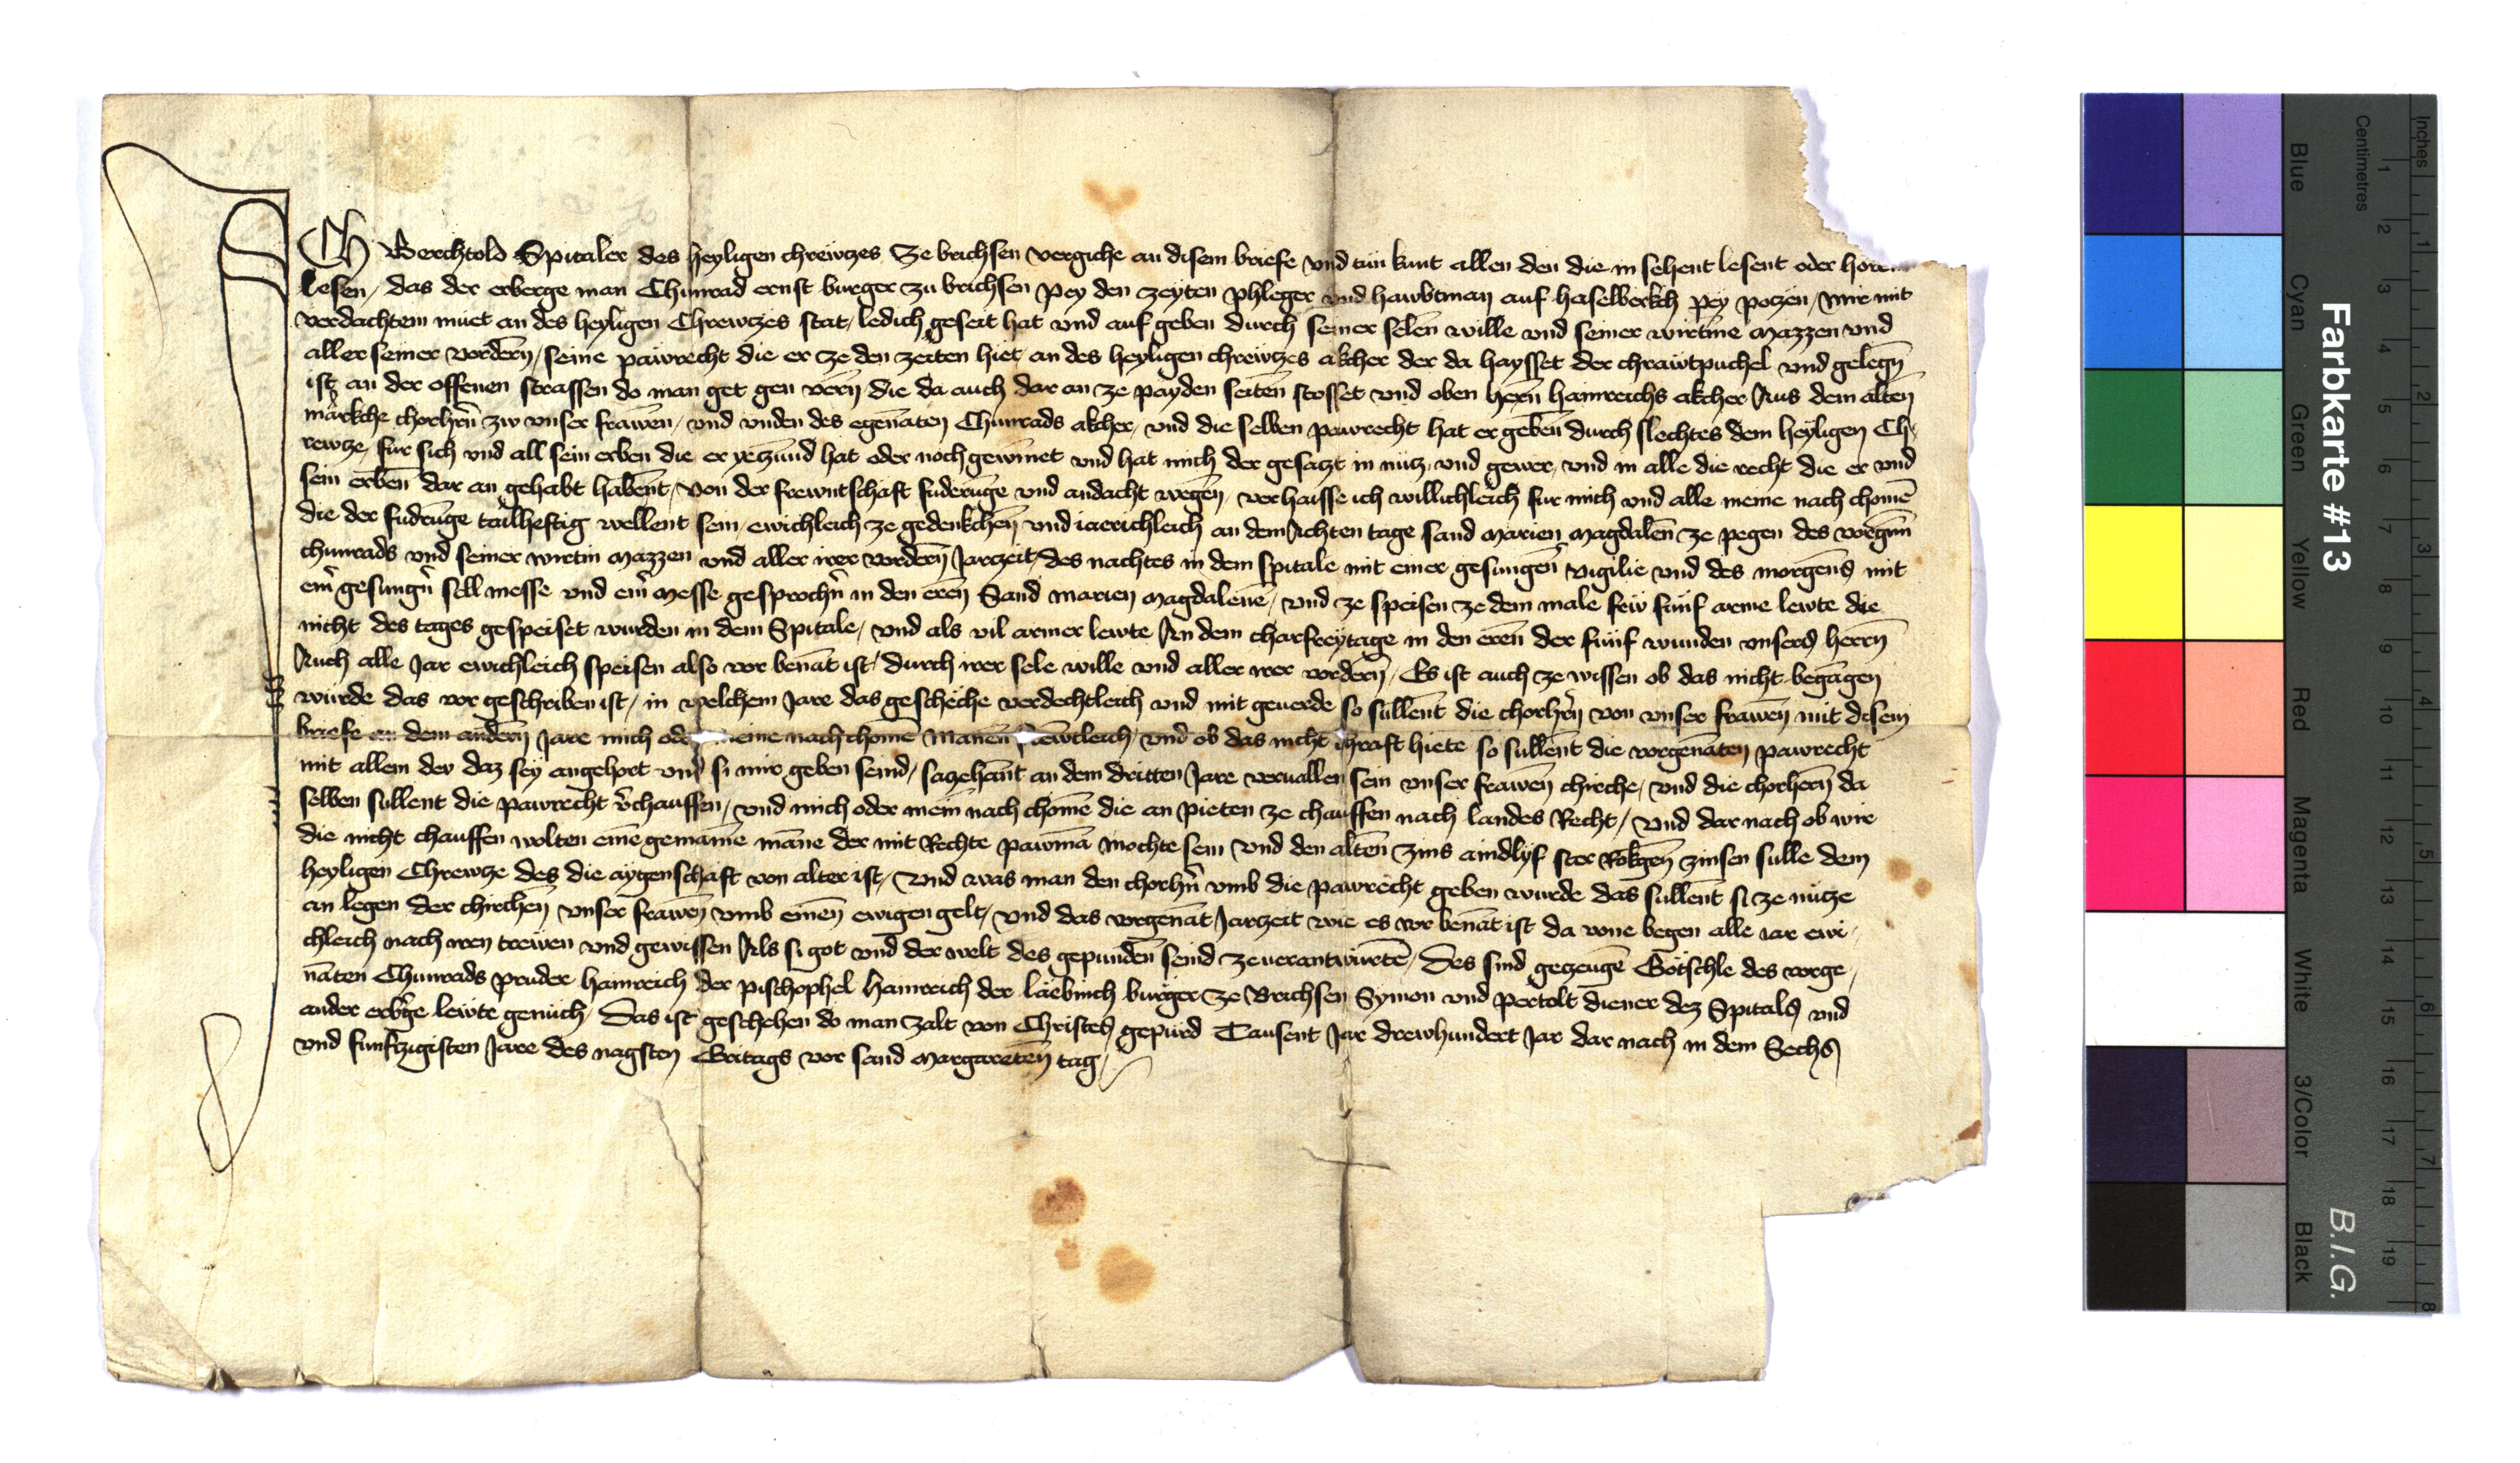 ICh Berchtold Spitaler des heyligen chrewtzes Ze brichsen vergiche an disem briefe vnd tun kunt allen den die in sehent lesent oder
lesen / das der erberge man Chunrad ernst burger zu brichsen pey den zeyten phleger vnd hawbtman auf haselberkch pey potzen / mir mit
verdachtem muet an des heyligen Chrewtzes stat / ledich geseit hat vnd auf geben durch seiner selen wille vnd seiner wirtine Mazzen vnd
aller seiner vordern̄ / seine pawrecht die er ze den zeiten hiet an des heyligen chrewtzes akcher der da haysset der chrawtpuchel vnd gelegn̄
ist an der offenen strassen do man get gen vern̄ die da auch dar an ze payden seiten stosset vnd oben hern̄ hainreichs akcher Aus dem alten
märkche chorhrn̄ zw vnser frawen / vnd vnden des egenāten Chunrads akcher / vnd die selben pawrecht hat er geben durch slechtes dem heyligen Ch /
rewtze / fur sich vnd all sein erben die er yeczund hat oder noch gewinnet vnd hat mich der gesatzt in nutz vnd gewer / vnd in alle die recht die er vnd
sein erben dar an gehabt habent / Von der frewntschaft fuderunge vnd andacht wegen / ver haisse ich willichleich fur mich vnd alle meine nach chomē
die der fudrunge tailheftig wellent sein / ewichleich ze gedenkchen vnd iaerichleich an dem Achten tage sand Marien Magdalen ze pegen des vorgnn̄
chunrads vnd seiner wirtin Mazzen vnd aller irer vordern̄ Jarzeit / des nachtes in dem spitale mit einer gesungen vigilie vnd des morgens mit
ein̄ gesungn̄ sell messe vnd ein̄ Messe gesprochn̄ in den eren Sand Marien Magdalene / vnd ze speisen ze dem male frw funf arme lewte die
nicht des tages gespeiset wurden in dem Spitale / vnd als vil armer lewte An dem charfreytage in den eren der funf wunden vnsers herrn̄
Auch alle Jar ewichleich speisen also vor benāt ist / durch irer sele wille vnd aller irer vordern̄ / Es ist auch ze wissen ob das nicht begangen
wurde das vor geschriben ist / in welchem Jare das gescheche verdechtleich vnd mit geuerde so sullent die chorhrn̄ von vnser frawen mit disem
briefe an dem andern̄ Jare mich oder meine nach chomē Manen vnd ob das nicht chraft hiete so sullent die vorgenāten pawrecht
mit allem der daz sey angehort vnd si mir geben seind / satzehant an dem dritten Jare veruallen sein vnser frawen chirche / vnd die chorhern̄ da
selben sullent die pawrecht v̄chauffen / vnd mich oder mein nach chomē die an pieten ze chauffen nach landes Recht / vnd dar nach ob wir
die nicht chauffen wolten einē gemainē manne der mit Rechte pawmā mochte sein vnd den alten zins aindlyf ster Rokgen zinsen sulle dem
heyligen Chrewtze des die aygenschaft von alter ist / vnd was man den chorhn̄ vmb die pawrecht geben wurde das sullent si ze nutze
an legen der chirchen vnser frawen vmb einen ewigen gelt / vnd das vorgenāt Jarzeit wie es vor benāt ist da vone begen alle iar ewi /
chleich nach iren trewen vnd gewissen Als si got vnd der welt des gepunden seind ze uerantwurtē / Des sind gezeugē Götschle des vorge /
nāten Chunrads pruder hainreich der pischophel hainreich der laebinch burger ze Brichsen Symon vnd Pertolt diener dez Spitals vnd
ander erbge lewte genuch / Das ist geschehen do man zalt von Christes gepurd Tausent Jar drewhundert Jar dar nach in dem Sechs
vnd funfzigisten Jare des nagsten Eritags vor sand Margareten tag /
Farbkarte #13
B.I.G.
Inches
Centimetres
Blue
Cyan
Green
Yellow
Red
Magenta
White
3/Color
Black
1 2 3 4 5 6 7 8 9 10 11 12 13 14 15 16 17 18 19
1 2 3 4 5 6 7 8